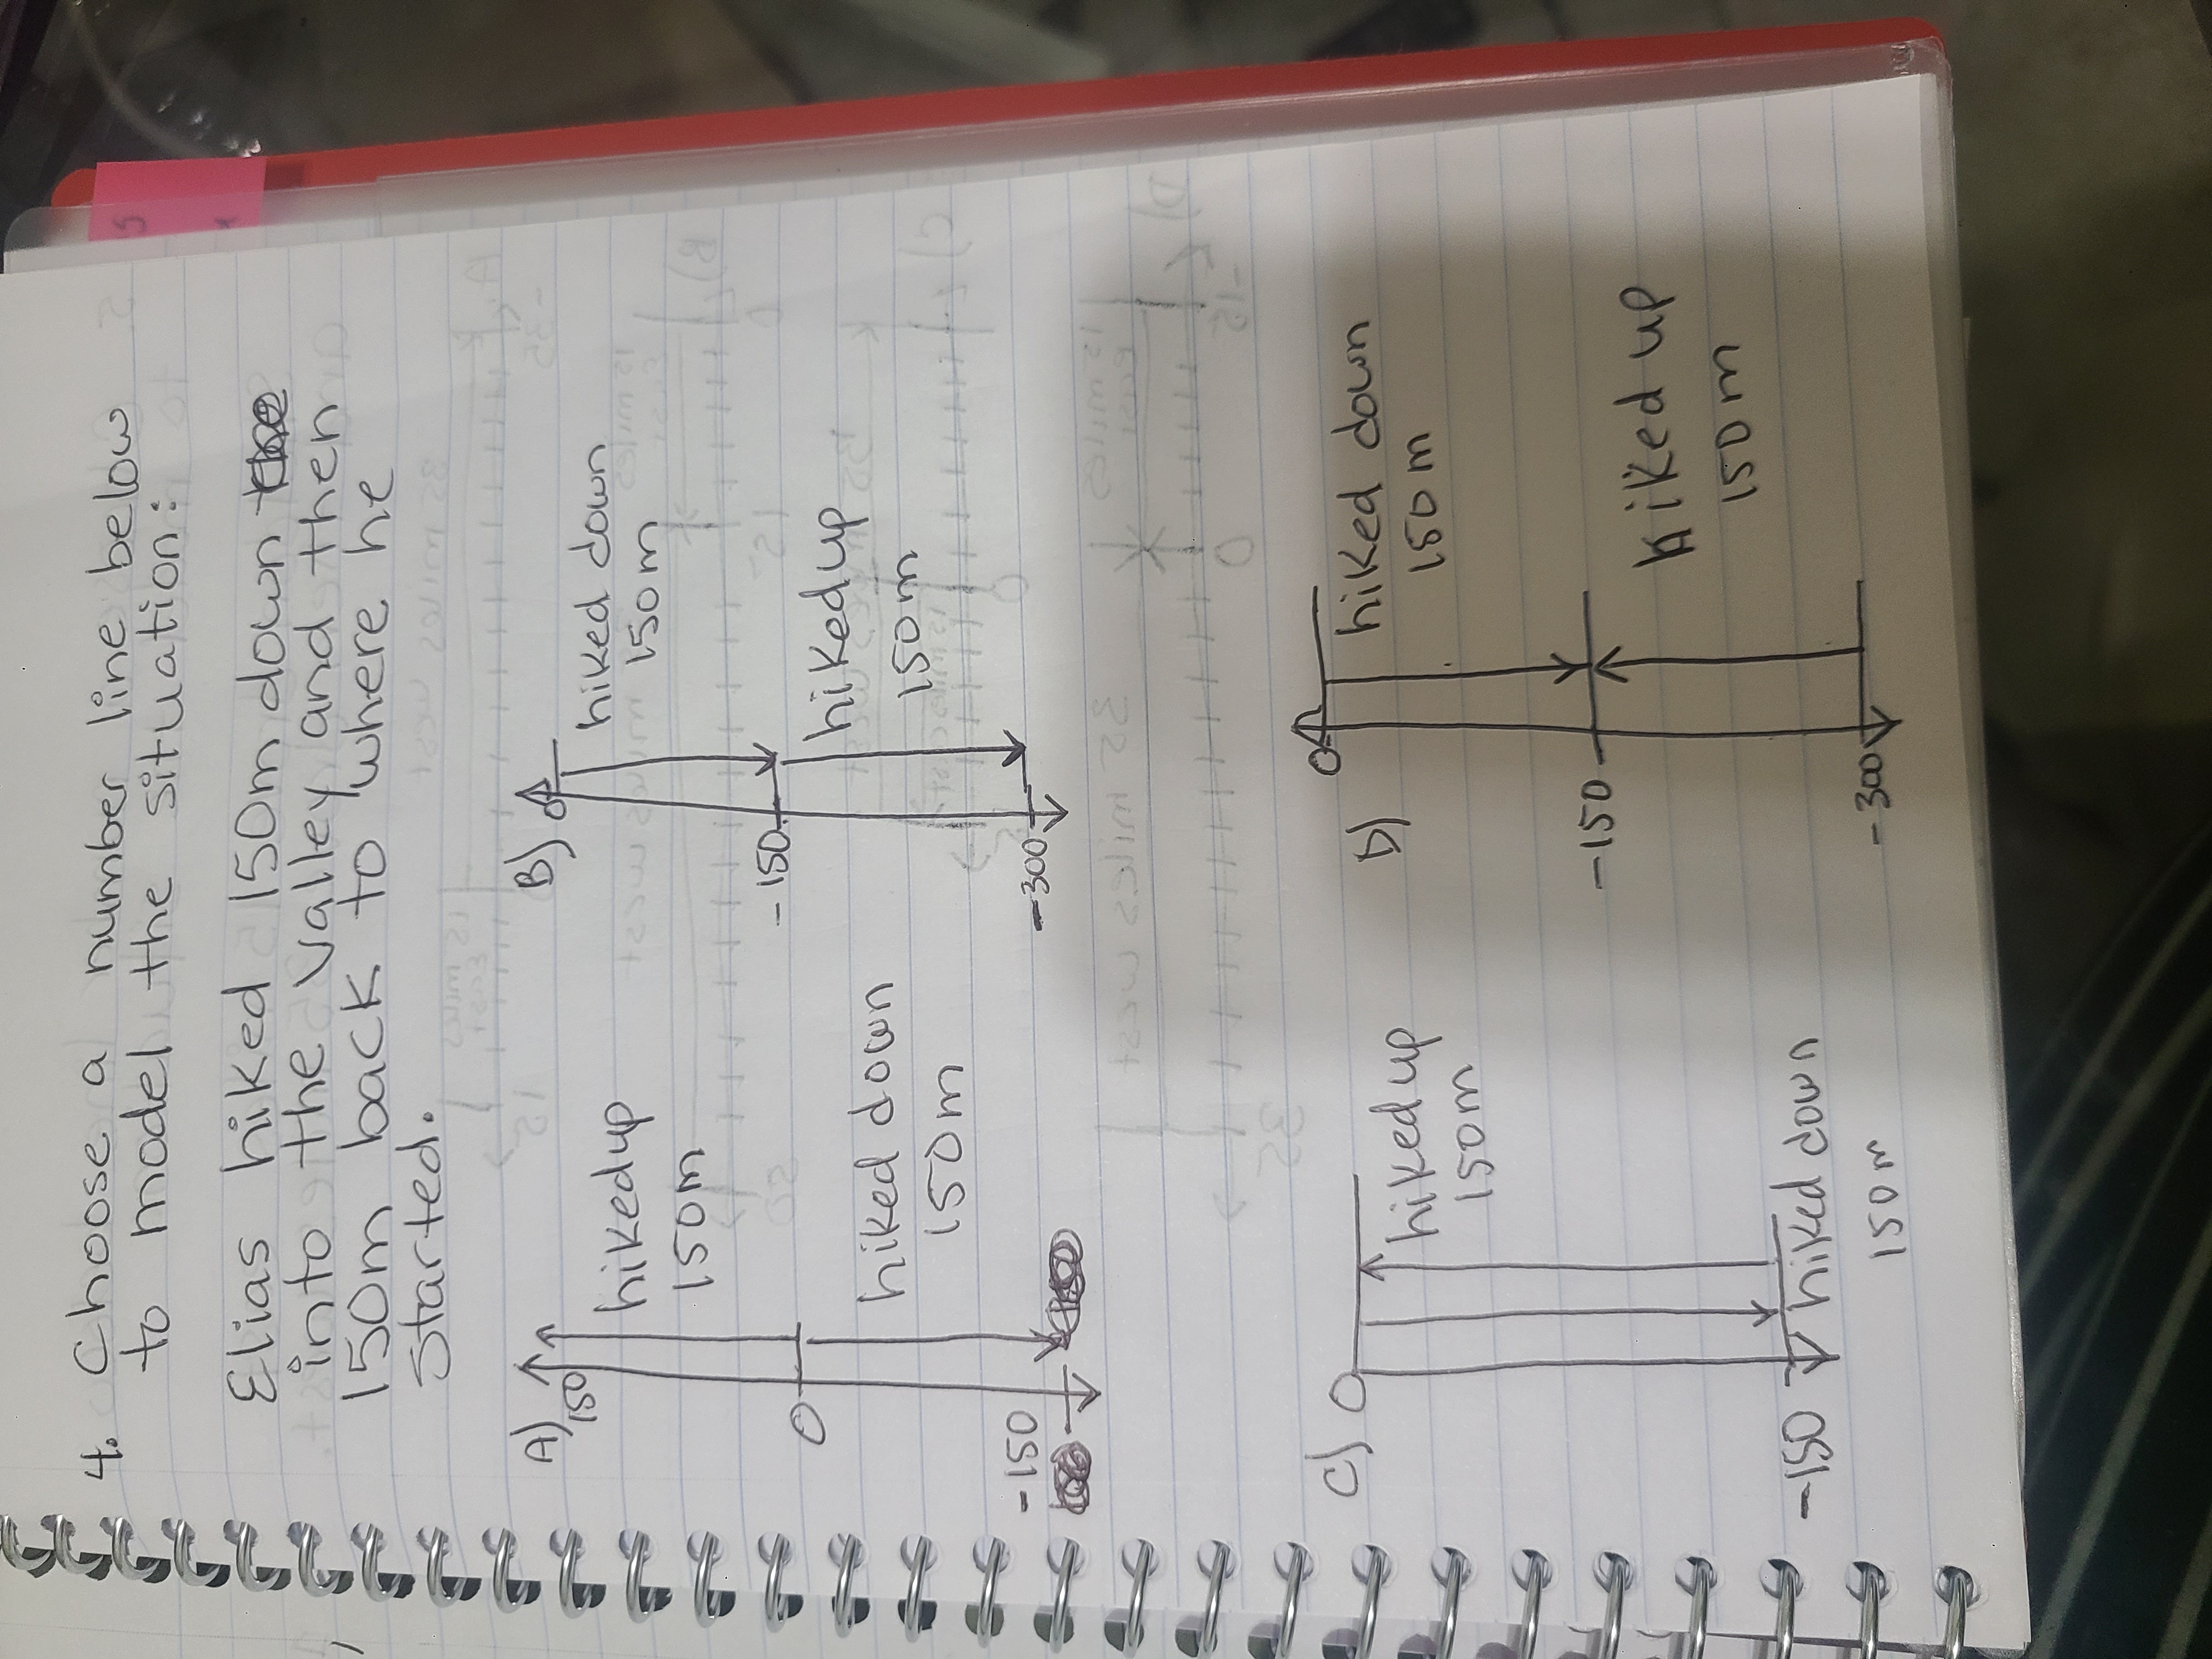 4. Choose a number line below
to model the situation:
Elias hiked 150m down
into the valley and then
150m back to where he
started.
A)
150
hiked up
150m
0
hiked down
150m
-150
B)
0
hiked down
150m
-150
hiked up
150m
-300
C)
0
hiked up
150m
-150
hiked down
150m
D)
0
hiked down
150m
-150
hiked up
150m
-300